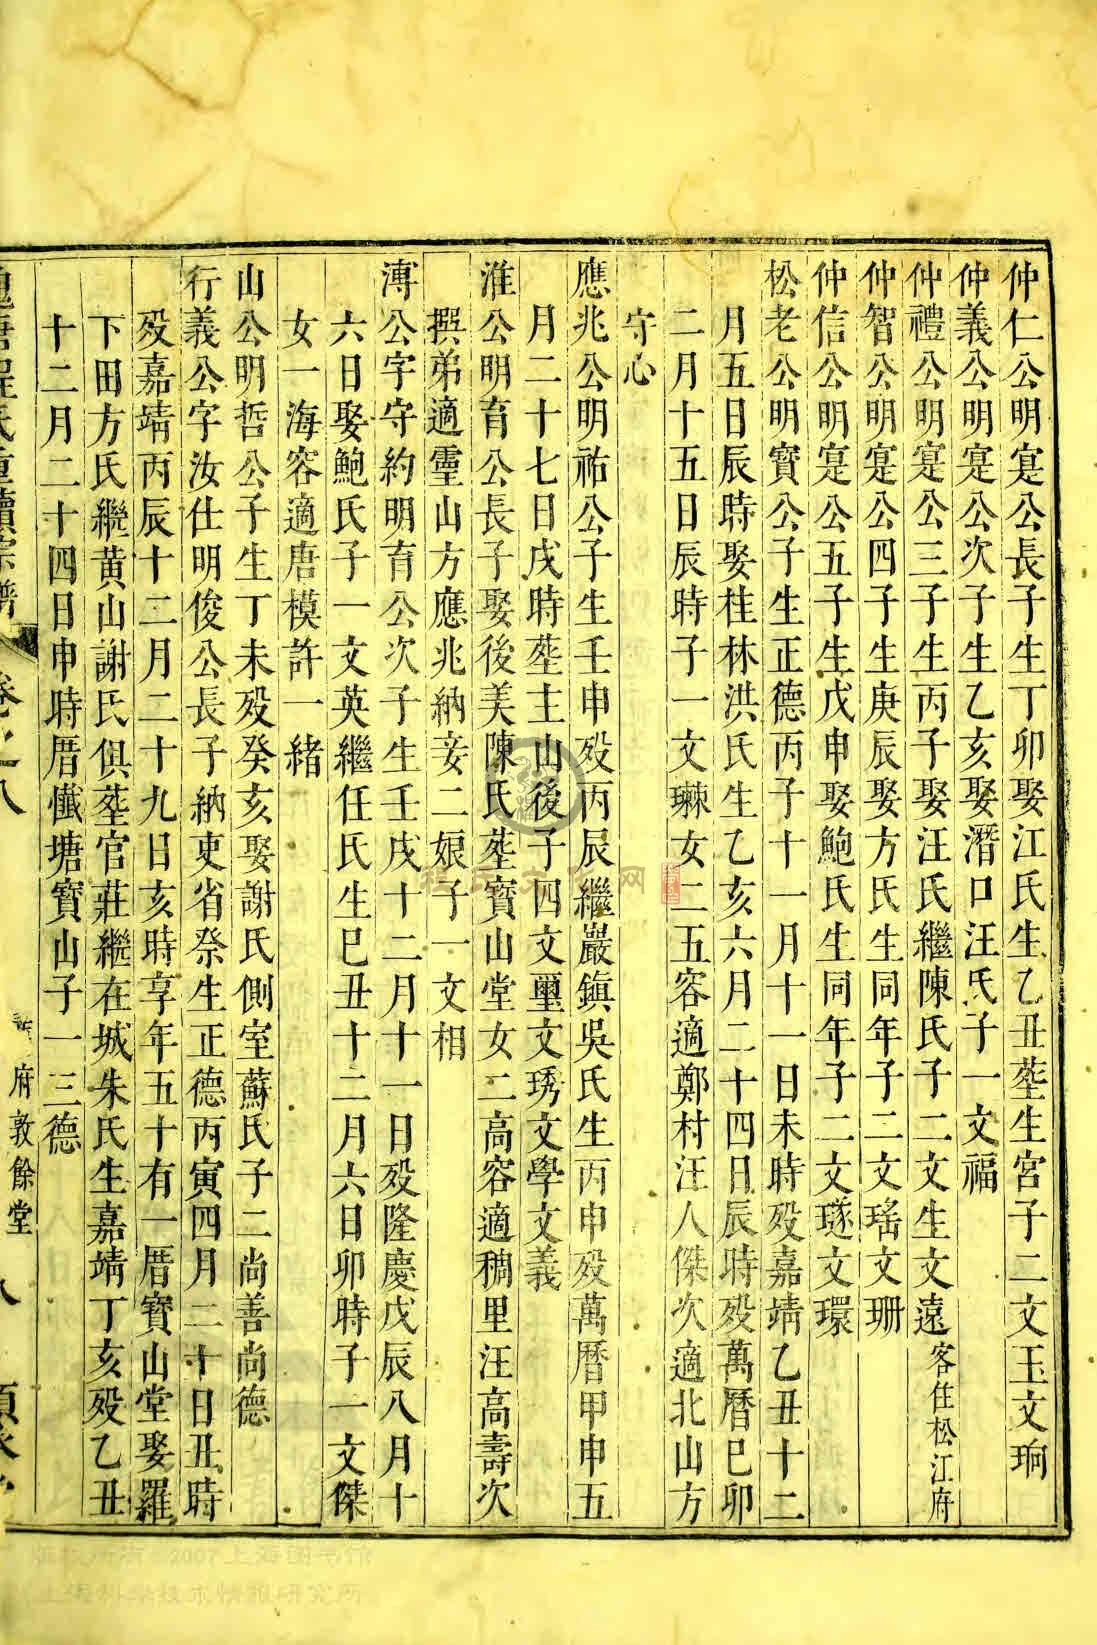 仲仁公明寔公長子生丁卯娶江氏生乙丑塟生宮子二文玉文珦
仲義公明寔公次子生乙亥娶潛口汪氏子一文福
仲禮公明寔公三子生丙子娶汪氏繼陳氏子二文生文遠客住松江府
仲智公明寔公四子生庚辰娶方氏生同年子二文瑤文珊
仲信公明寔公五子生戊申娶鮑氏生同年子二文璲文環
松老公明寶公子生正德丙子十一月十一日未時殁嘉靖乙丑十二
月五日辰時娶桂林洪氏生乙亥六月二十四日辰時殁萬曆巳卯
二月十五日辰時子一文琳女二五容適鄭村汪人傑次適北山方
守心
應兆公明祐公子生壬申殁丙辰繼巖鎮吳氏生丙申殁萬曆甲申五
月二十七日戌時塟主山後子四文璽文琇文學文義
淮公明育公長子娶後美陳氏塟寶山堂女二高容適稠里汪高壽次
撰弟適靈山方應兆納妾二娘子一文相
溥公字守約明育公次子生壬戌十二月十一日殁隆慶戊辰八月十
六日娶鮑氏子一文英繼任氏生巳丑十二月六日卯時子一文傑
女一海容適唐模許一緒
山公明哲公子生丁未殁癸亥娶謝氏側室蘇氏子二尚善尚德
行義公字汝仕明俊公長子納吏省祭生正德丙寅四月二十日丑時
殁嘉靖丙辰十二月二十九日亥時享年五十有一厝寶山堂娶羅
下田方氏繼黃山謝氏俱塟官莊繼在城朱氏生嘉靖丁亥殁乙丑
十二月二十四日申時厝儎塘寶山子一三德
程氏重續宗譜 卷之八
府敦餘堂
八
程氏文化网
版权所有 2007上海图书馆
上海科学技术情报研究所